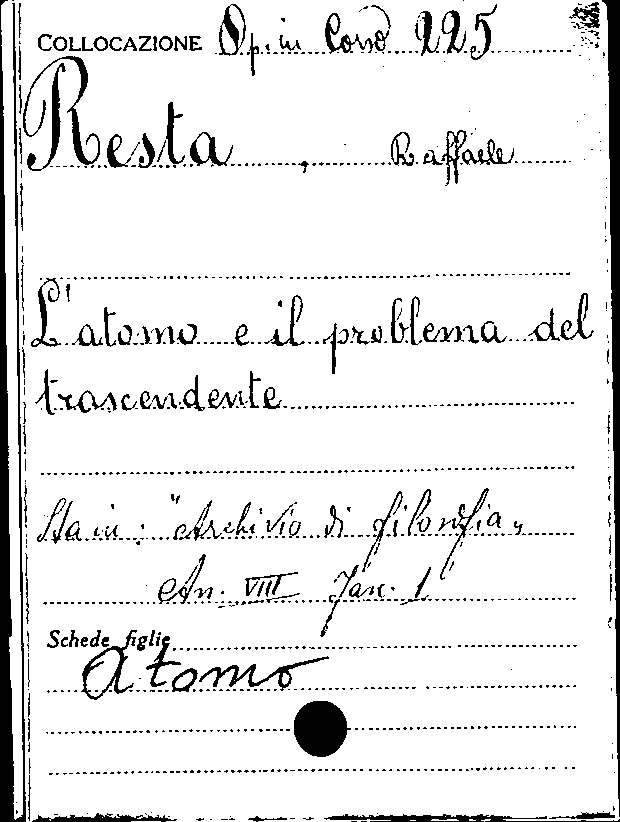 COLLOCAZIONE Op. in Corso 225
Resta, Raffaele
L'atomo e il problema del
trascendente
Sta in: "Archivio di filosofia"
An. VIII Fasc. 1
Schede figlie
Atomo